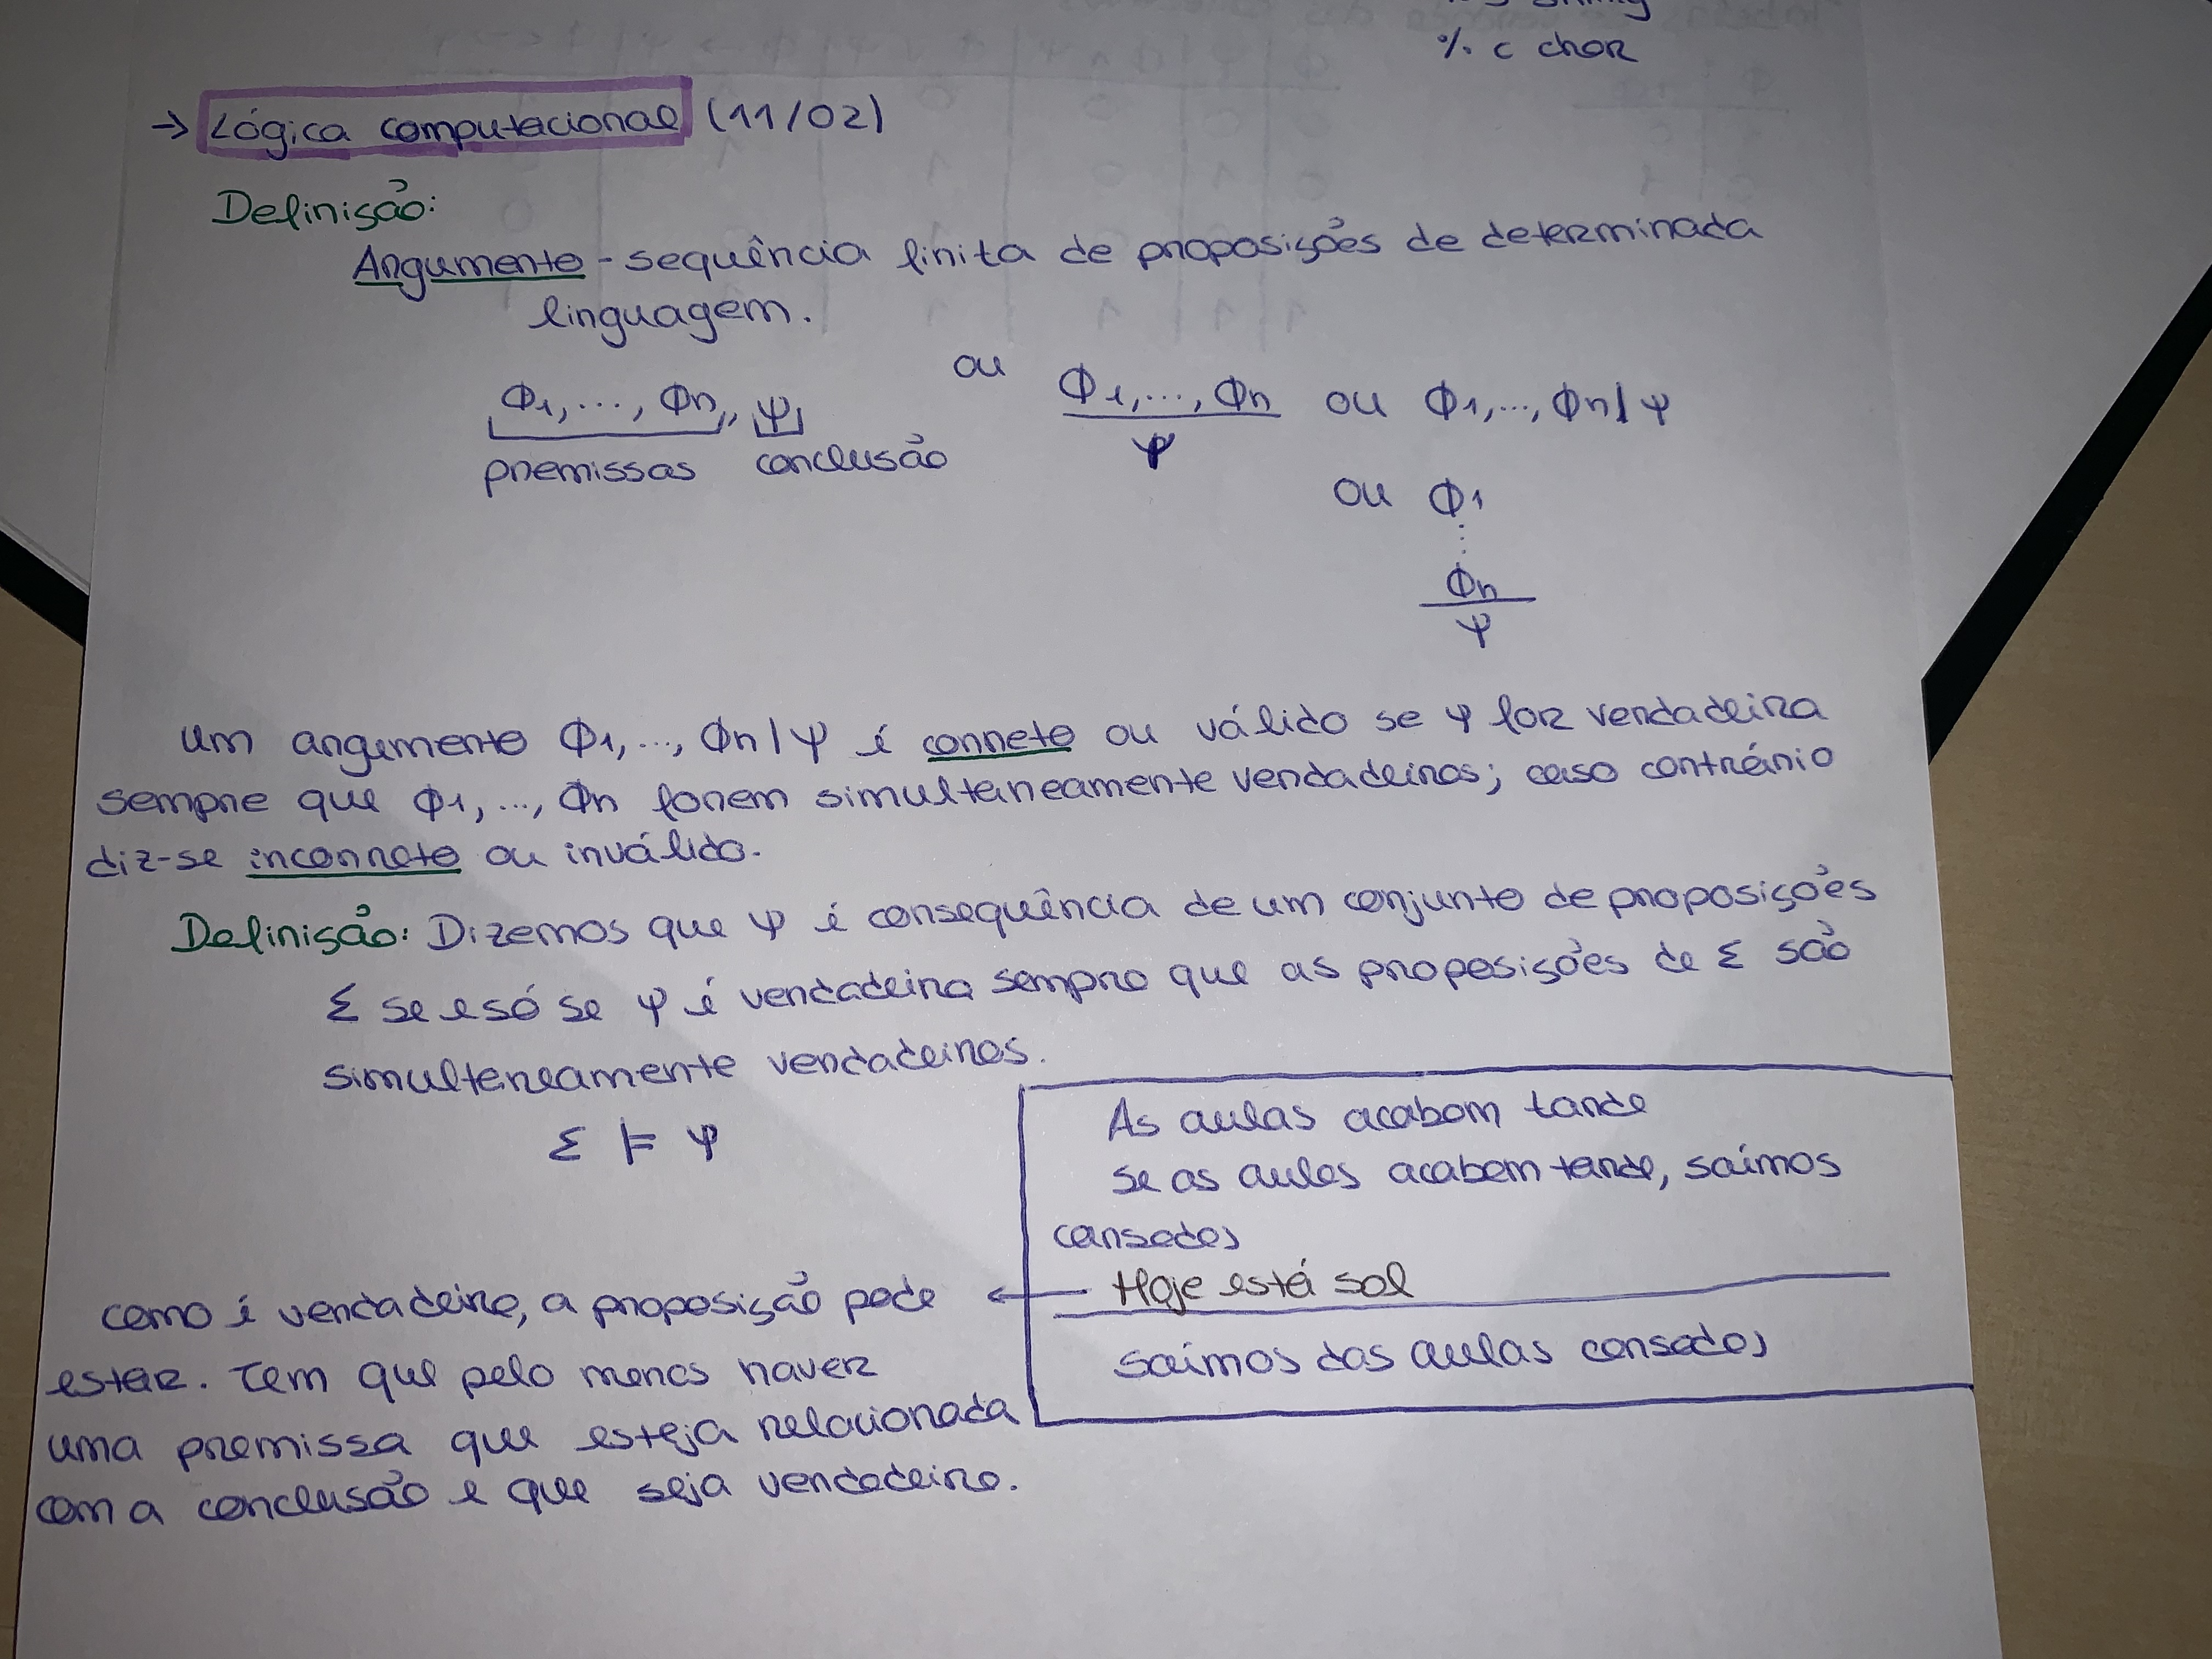 % c char
→ Lógica computacional (11/02)
Definição:
Argumento - sequência finita de proposições de determinada
linguagem.
Φ1, ..., Φn, ψ ou Φ1, ..., Φn ou Φ1, ..., Φn / ψ
premissas conclusão ψ
ou Φ1
⋮
Φn
ψ
Um argumento Φ1, ..., Φn / ψ é correto ou válido se ψ for verdadeira
sempre que Φ1, ..., Φn forem simultaneamente verdadeiros; caso contrário
diz-se incorreto ou inválido.
Definição: Dizemos que ψ é consequência de um conjunto de proposições
Σ se e só se ψ é verdadeira sempre que as proposições de Σ são
simultaneamente verdadeiros.
Σ ⊨ ψ
As aulas acabam tarde
se as aulas acabam tarde, saímos
cansados
← Hoje está sol
saímos das aulas cansados
como é verdadeiro, a proposição pode
estar. Tem que pelo menos haver
uma premissa que esteja relacionada
com a conclusão e que seja verdadeiro.